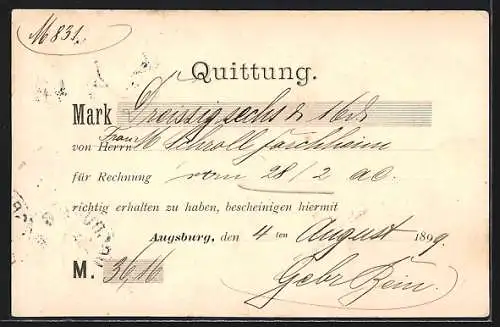 M 831.
Quittung.
Mark Dreissigsechs & 16 d
Frau
von Herrn M Schroll
für Rechnung vom 28/2 ac.
richtig erhalten zu haben, bescheinigen hiermit
Augsburg, den 4 ten August 1899.
M. 36,16 Gebr